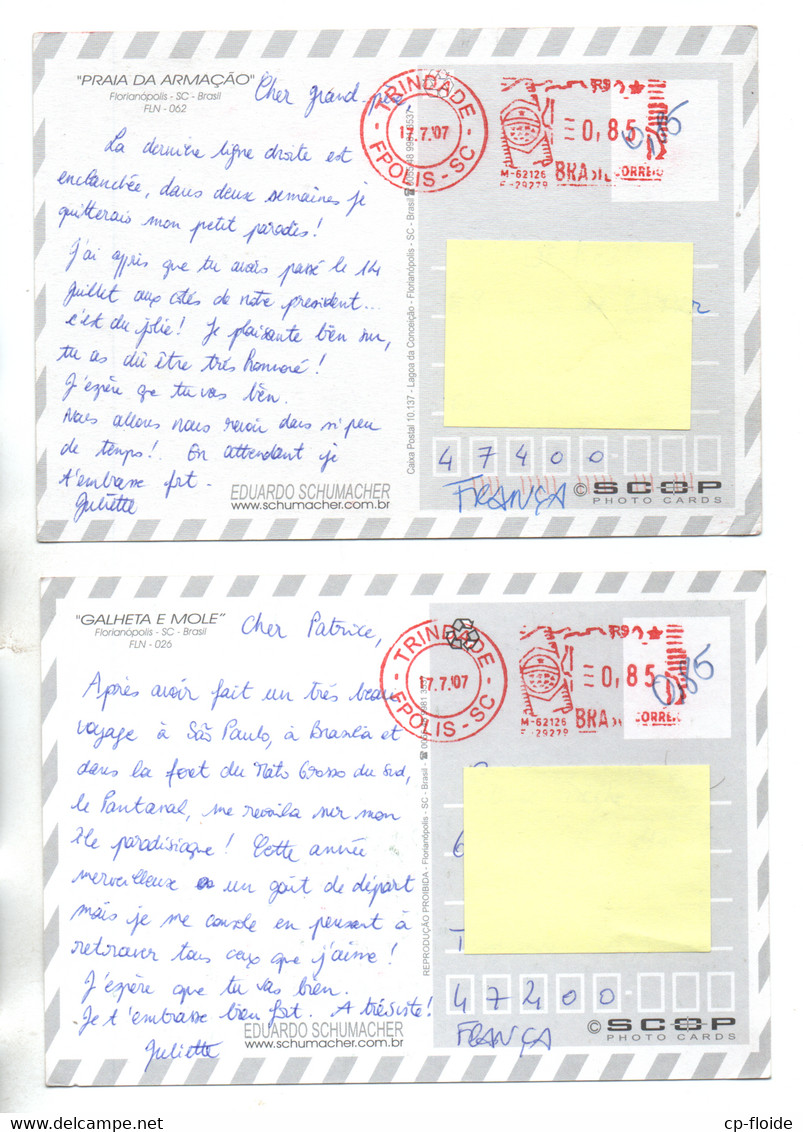 "PRAIA DA ARMAÇÃO"
Florianópolis - SC - Brasil
FLN - 062
Cher grand-père,
La dernière ligne droite est
enclanchée, dans deux semaines je
quitterais mon petit paradis!
J'ai appris que tu avais passé le 14
juillet aux côtés de notre président...
c'est du jolie! Je plaisante bien sur,
tu as dû être très honoré!
J'espère que tu vas bien.
Nous allons nous revoir dans si peu
de temps! En attendant je
t'embrasse fort.
Juliette
EDUARDO SCHUMACHER
www.schumacher.com.br
Caixa Postal 10.137 - Lagoa da Conceição - Florianópolis - SC - Brasil
TRINDADE
17.7.'07
FPOLIS - SC
R9
0,85
M-62126
BRASIL CORREIO
0,85
47400
FRANÇA
© SCOP
PHOTO CARDS
"GALHETA E MOLE"
Florianópolis - SC - Brasil
FLN - 026
Cher Patrice,
Après avoir fait un très beau
voyage à São Paulo, à Brasilia et
dans la foret du Mato Grosso du Sud,
le Pantanal, me revoila sur mon
île paradisiaque! Cette année
merveilleuse a un goût de départ
mais je me console en pensant à
retrouver tous ceux que j'aime!
J'espère que tu vas bien.
Je t'embrasse bien fort. A très vite!
Juliette
EDUARDO SCHUMACHER
www.schumacher.com.br
REPRODUÇÃO PROIBIDA - Florianópolis - SC - Brasil
TRINDADE
17.7.'07
FPOLIS - SC
R9
0,85
M-62126
BRA CORREIO
0,85
47200
FRANÇA
© SCOP
PHOTO CARDS
cp-floide